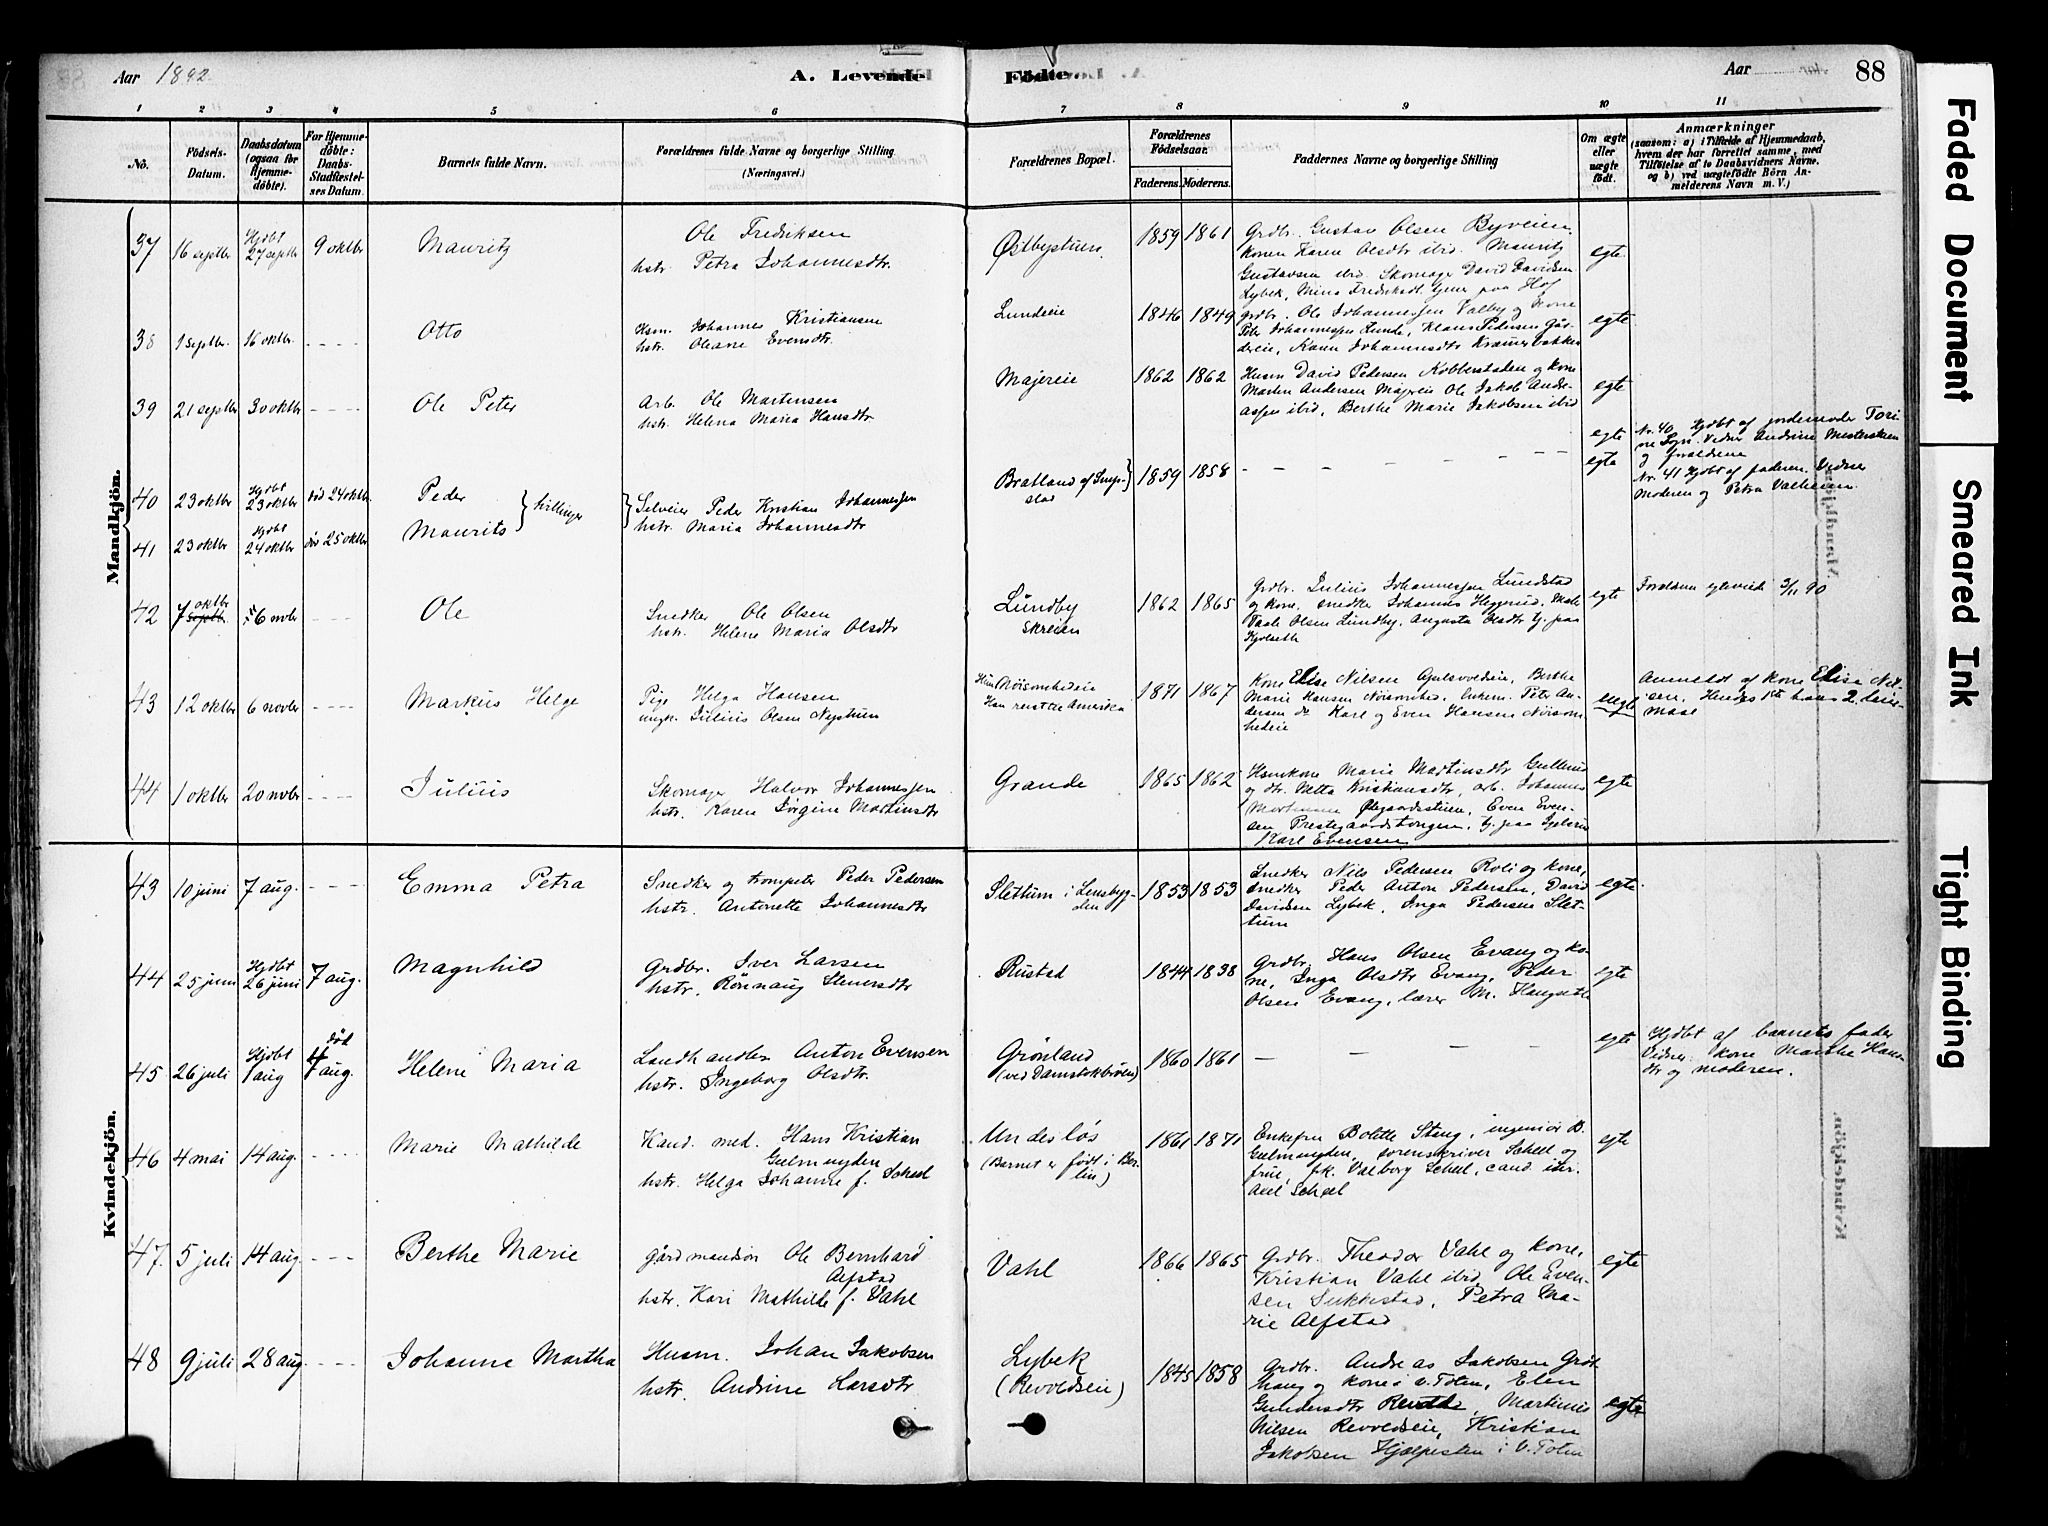 Aar 1892
A. Levende
Fødte
Aar
88
1 2 3 4 5 6 7 8 9 10 11
No.
Fødsels-Datum.
Daabsdatum (ogsaa for Hjemme-døbte).
For Hjemme-døbte: Daabs-Stadfæstel-ses Datum.
Barnets fulde Navn.
Forældrenes fulde Navne og borgerlige Stilling (Næringsvei.)
Forældrenes Bopæl.
Forældrenes Fødselsaar.
Faderens. Moderens.
Faddernes Navne og borgerlige Stilling
Om ægte eller uægte født.
Anmærkninger
(saasom: a) i Tilfælde af Hjemmedaab, hvem der har forrettet samme, med Tilføielse af to Daabsvidners Navne. og b) ved uægtefødte Børn An-melderens Navn m. V.)
Mandkjøn.
37 16 septbr Hjdbt 27 septbr 9 oktbr Mauritz
Ole Fredriksen
hstr. Petra Johannesdtr.
Østbystuen. 1859 1861
Grdbr. Gustav Olsen Byveien,
Konen Karen Olsdtr ibid. Mauritz
Gustavsen ibid, Skomager David Davidsen
Lybek, Mina Fredriksdt. tjener paa Hof
egte.
38 1 septbr. 16 oktbr. - - - - Otto
Hsm. Johannes Kristiansen
hstr. Oleane Evensdtr.
Lundeie 1846 1849
Grdbr. Ole Johannessen Valby og kone
Peter Johannessen Lunde, Klaus Pedersen
Karen Johannesdtr
egte
39 21 septbr 30 oktbr - - - - Ole Peter
Arb. Ole Martinsen
hstr. Helena Maria Hansdtr.
Majereie 1862 1862
Husm David Pedersen Kobberstaden og kone
Martin Andersen Majereie Ole Jakob Andre-
assen ibid, Berthe Marie Jakobsen ibid
egte
40 23 oktbr Hjdbt 23 oktbr død 24 oktbr. Peder
41 23 oktbr Hjdbt 24 oktbr død 25 oktbr Maurits
} tvillinger
Selveier Peder Kristian Johannessen
hstr. Maria Johannesdtr
Bratland af
stad
1859 1858
- - - - - - -
egte
egte
Nr. 40 Hjdbt af jordemoder Tori-
ne Vidner Andrine
og forældrene
Nr. 41 Hjdbt af faderen. Vidner
Moderen og Petra
42 7 oktbr septbr. 6 novbr - - - Ole
Snedker Ole Olsen
hstr. Helene Maria Olsdtr
Lundby
Skreien
1862 1865
Grdbr. Julius Johannessen Lundstad
og kone, snedker Johannes Heggerud, Male
Olsen Lundby, Augusta Olsdtr tj. paa
Kjølseth
egte
Forældrene egteviede 3/11 90
43 12 oktbr 6 novbr - - - Markus Helge
Pige Helga Hansen
ungk. Julius Olsen Nystuen
Hun Nøisomhedeie
Han reist til Amerika
1871 1867
Kone Elise Nilsen Berthe
Marie Hansen Nøisomhed, Enkem. Peter An-
dersen do Karl og Even Hansen Nøisom
hedeie
uegte
Anmeldt af kone Elise Nil-
sen, Hendes 1ste hans 2. leier-
maal
44 1 oktbr 20 novbr - - - - Julius
Skomager Halvor Johannessen
hstr. Karen Jørgine Martinsdtr
Grande 1865 1862
Hsmkone Marie Martinsdtr Gullerud
og dtr. Netta Kristiansdtr, arb. Johannes
Even Even-
sen Prestegaardstangen, tj. paa
Karl Evensen
egte
Kvindekjøn.
43 10 juni 7 aug. - - - - Emma Petra
Snedker og trompeter Peder Pedersen
hstr. Antonette Johannesdtr
Slettum i Lensbyg-
den
1853 1853
Snedker Nils Pedersen Roli og kone,
snedker Peder Anton Pedersen, David
Davidsen Lybek, Inga Pedersen Slet-
tum
egte.
44 25 juni Hjdbt 26 juni 7 aug. Magnhild
Grdbr. Iver Larsen
hstr. Rønnaug Stenersdtr
Rustad 1844 1838
Grdbr. Hans Olsen Evang og ko-
ne, Inga Olsdtr Evang, Peder
Olsen Evang, lærer M. Haugseth
egte
45 26 juli Hjdbt 1 aug død 4 aug. Helene Maria
Landhandler Anton Evensen
hstr. Ingeborg Olsdtr.
Grønland
(ved Damstokbroen)
1860 1861
- - - - -
egte
Hjdbt af barnets fader
Vidner kone Marthe Hans
dtr og moderen.
46 4 mai 14 aug. - - - - Marie Mathilde
Kand. med. Hans Kristian
Geelmuyden
hstr. Helga Johanne f. Scheel
Undesløs
(Barnet er født i Ber-
lin)
1861 1871
Enkefru Bolette Stang, ingeniør B.
Geelmuyden, sorenskriver Scheel og
frue, frk. Valborg Scheel, cand. jur.
Axel Scheel
egte
47. 5 juli 14 aug. - - - Berthe Marie
gårdmandsøn Ole Bernhard
Alfstad
hstr. Kari Mathilde f. Vahl
Vahl 1866 1865
Grdbr. Theodor Vahl og kone,
Kristian Vahl ibid, Ole Even-
sen Sukkestad, Petra Ma-
rie Alfstad
egte
48 9 juli 28 aug. - - - Johanne Martha
Husm. Johan Jakobsen
hstr. Andrine Larsdtr
Lybek
(Revoldseie)
1845 1858
Grdbr. Andreas Jakobsen Grøt
haug og kone i V. Toten, Elen
Gundersdtr Martinus
Nilsen Revoldseie, Kristian
Jakobsen Hjælpesten i V. Toten
egte
Faded Document
Smeared Ink
Tight Binding